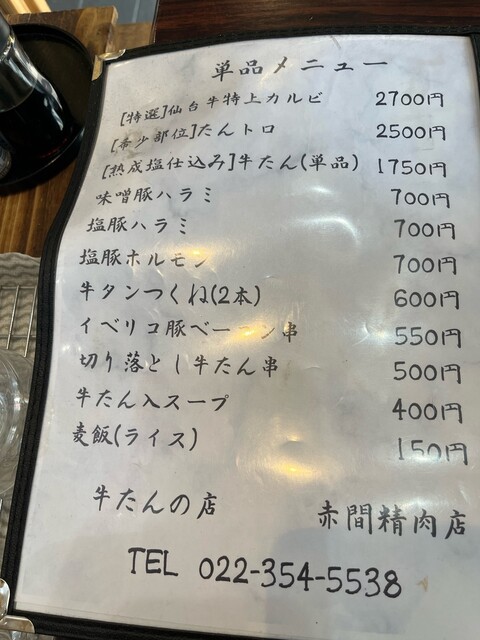 単品メニュー
[特選]仙台牛特上カルビ 2700円
[希少部位]たんトロ 2500円
[熟成塩仕込み]牛たん(単品) 1750円
味噌豚ハラミ 700円
塩豚ハラミ 700円
塩豚ホルモン 700円
牛タンつくね(2本) 600円
イベリコ豚ベーコン串 550円
切り落とし牛たん串 500円
牛たん入スープ 400円
麦飯(ライス) 150円
牛たんの店 赤間精肉店
TEL 022-354-5538